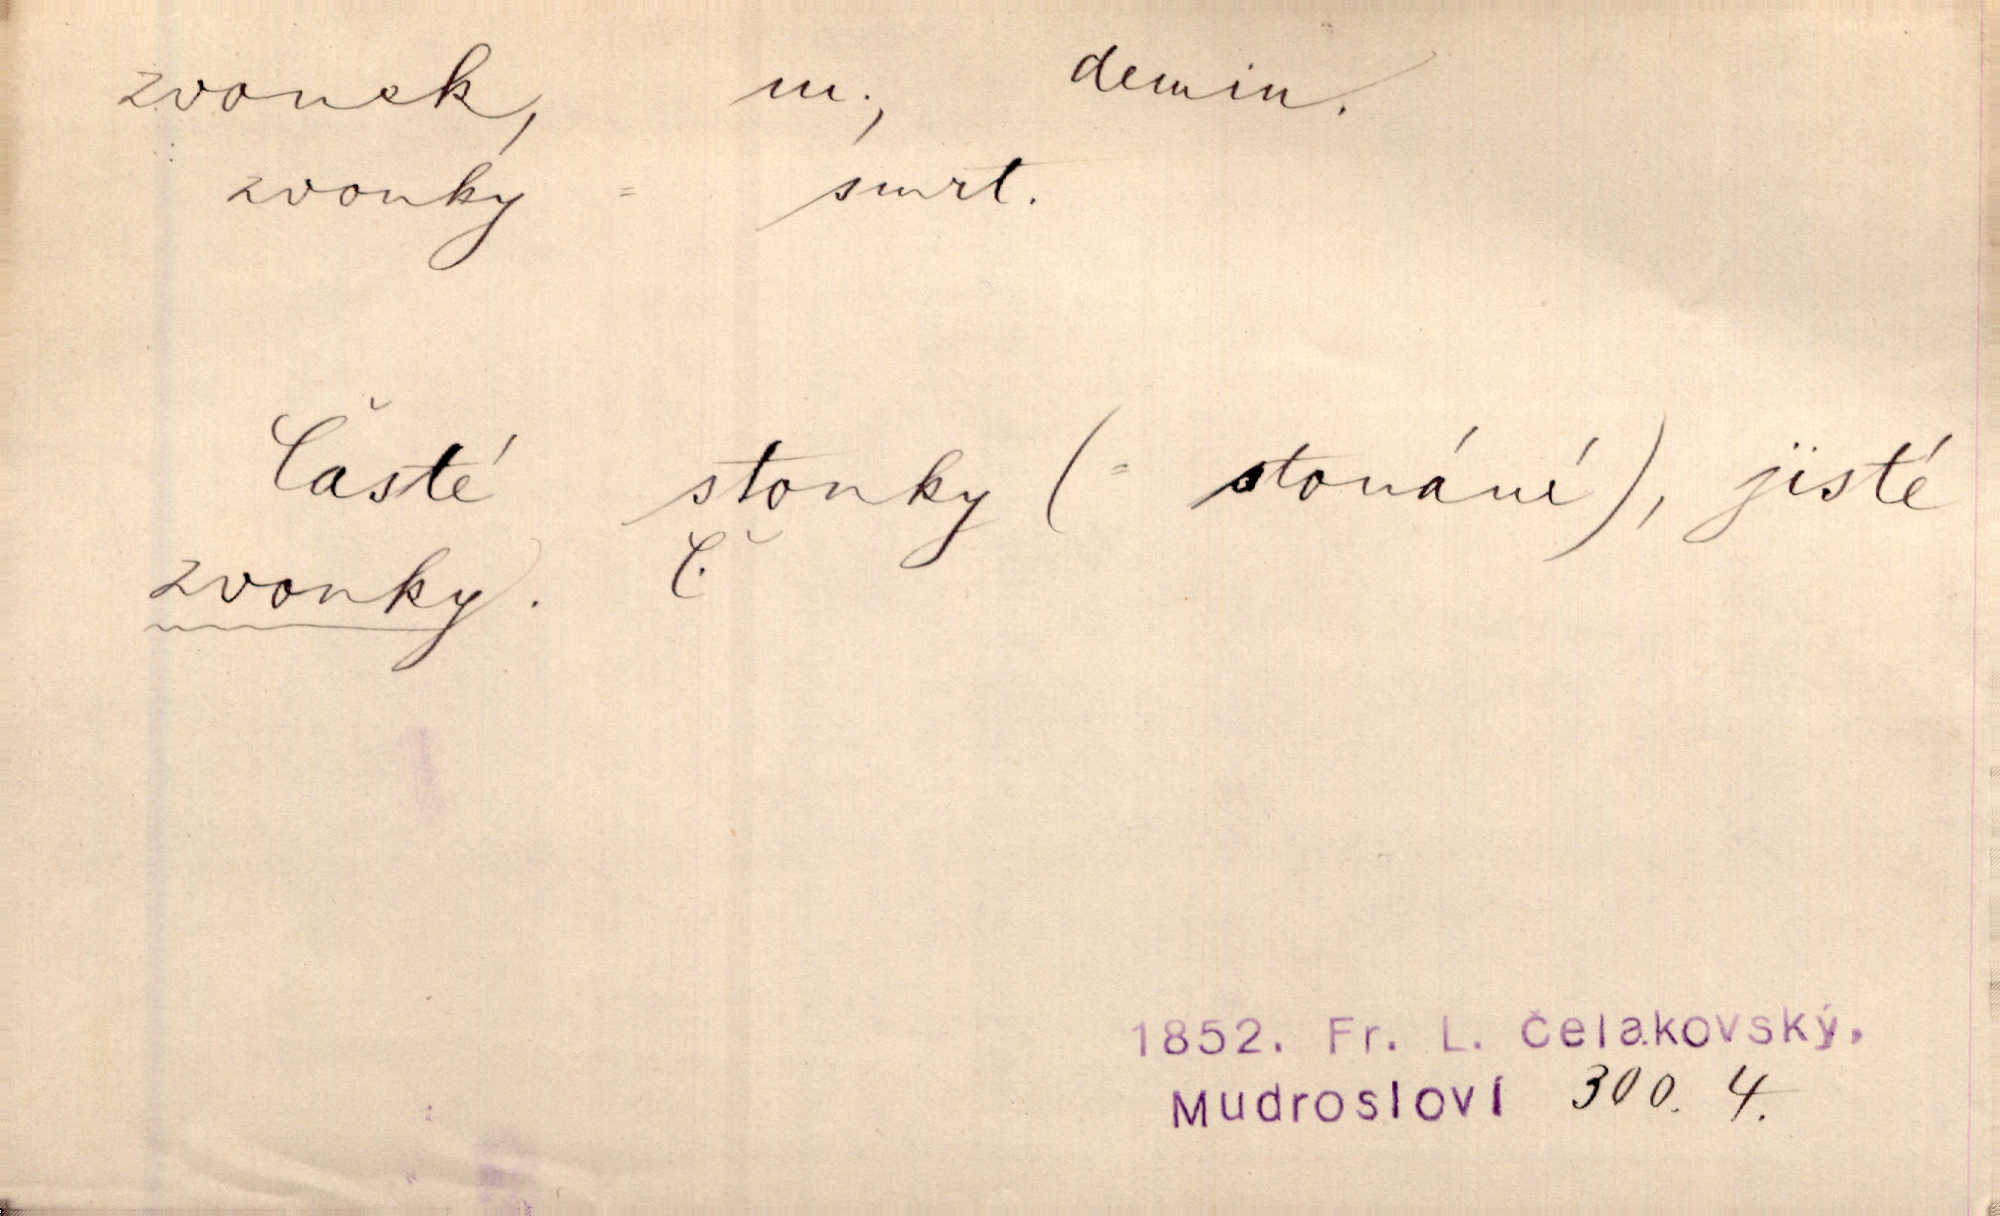 zvonek, m., demin.
zvonky = smrt.
Časté stonky (= stonání), jisté
zvonky. Č.
1852. Fr. L. Čelakovský,
Mudrosloví 300. 4.